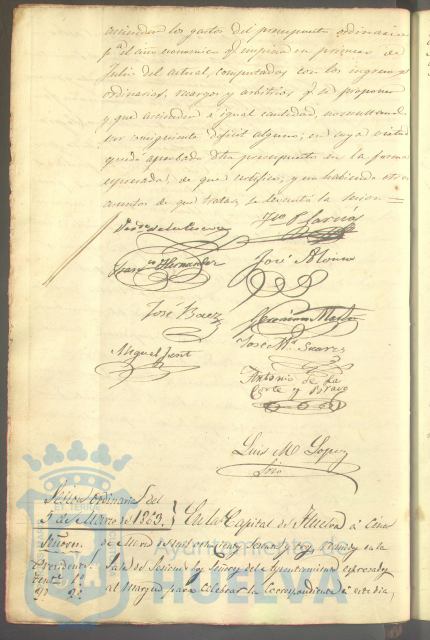 ascienden los gastos del presupuesto ordinario
pª el año economico qe empieza en primero de
Julio del actual, comparados con los ingresos
ordinarios, recargos y arbitrios, qe se proponen
y que ascienden a igual cantidad, no resultando
por consiguiente deficit alguno; en cuya virtud
quedó aprobado dho presupuesto en la forma
espresada, de que certifico; y no habiendo otros
asuntos de que tratar, se levantó la sesion=
Garcia
Hernandez
José Alonso
José Baez
Miguel
Jose Mª Suarez
Antonio de la
Corte y Bravo
Luis M Lopez
Srio
Sesion ordinaria del
5 de Marzo de 1863
En la Capital de Huelva á cinco
Señores
de Marzo de mil ochocientos sesenta y tres, reunidos en la
Presidente
Sala de Sesiones los Señores del Ayuntamiento espresados
al margen para celebrar la correspondiente á este dia,
Ayuntamiento de
HUELVA